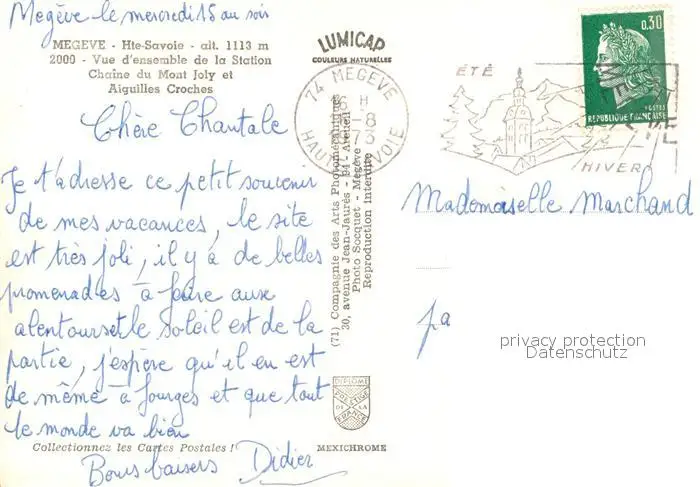 Megève le mercredi 15 au soir
MEGEVE - Hte-Savoie - alt. 1113 m
2000 - Vue d'ensemble de la Station
Chaîne du Mont Joly et
Aiguilles Croches
LUMICAP
COULEURS NATURELLES
Chère Chantale
Je t'adresse ce petit souvenir
de mes vacances, le site
est très joli, il y a de belles
promenades à faire aux
alentours et le soleil est de la
partie, j'espère qu'il en est
de même à Fourges et que tout
le monde va bien
Bons baisers Didier
Collectionnez les Cartes Postales !
(71) Compagnie des Arts Photomécaniques
30, avenue Jean-Jaurès - 94 - Arcueil
Photo Socquet - Megève
Reproduction interdite
DIPLOME
PRESTIGE
DE LA
FRANCE
MEXICHROME
74 MEGEVE
16 H
-8
1973
HAUTE SAVOIE
ÉTÉ
HIVER
0,30
POSTES
REPUBLIQUE FRANÇAISE
Mademoiselle Marchand
privacy protection
Datenschutz